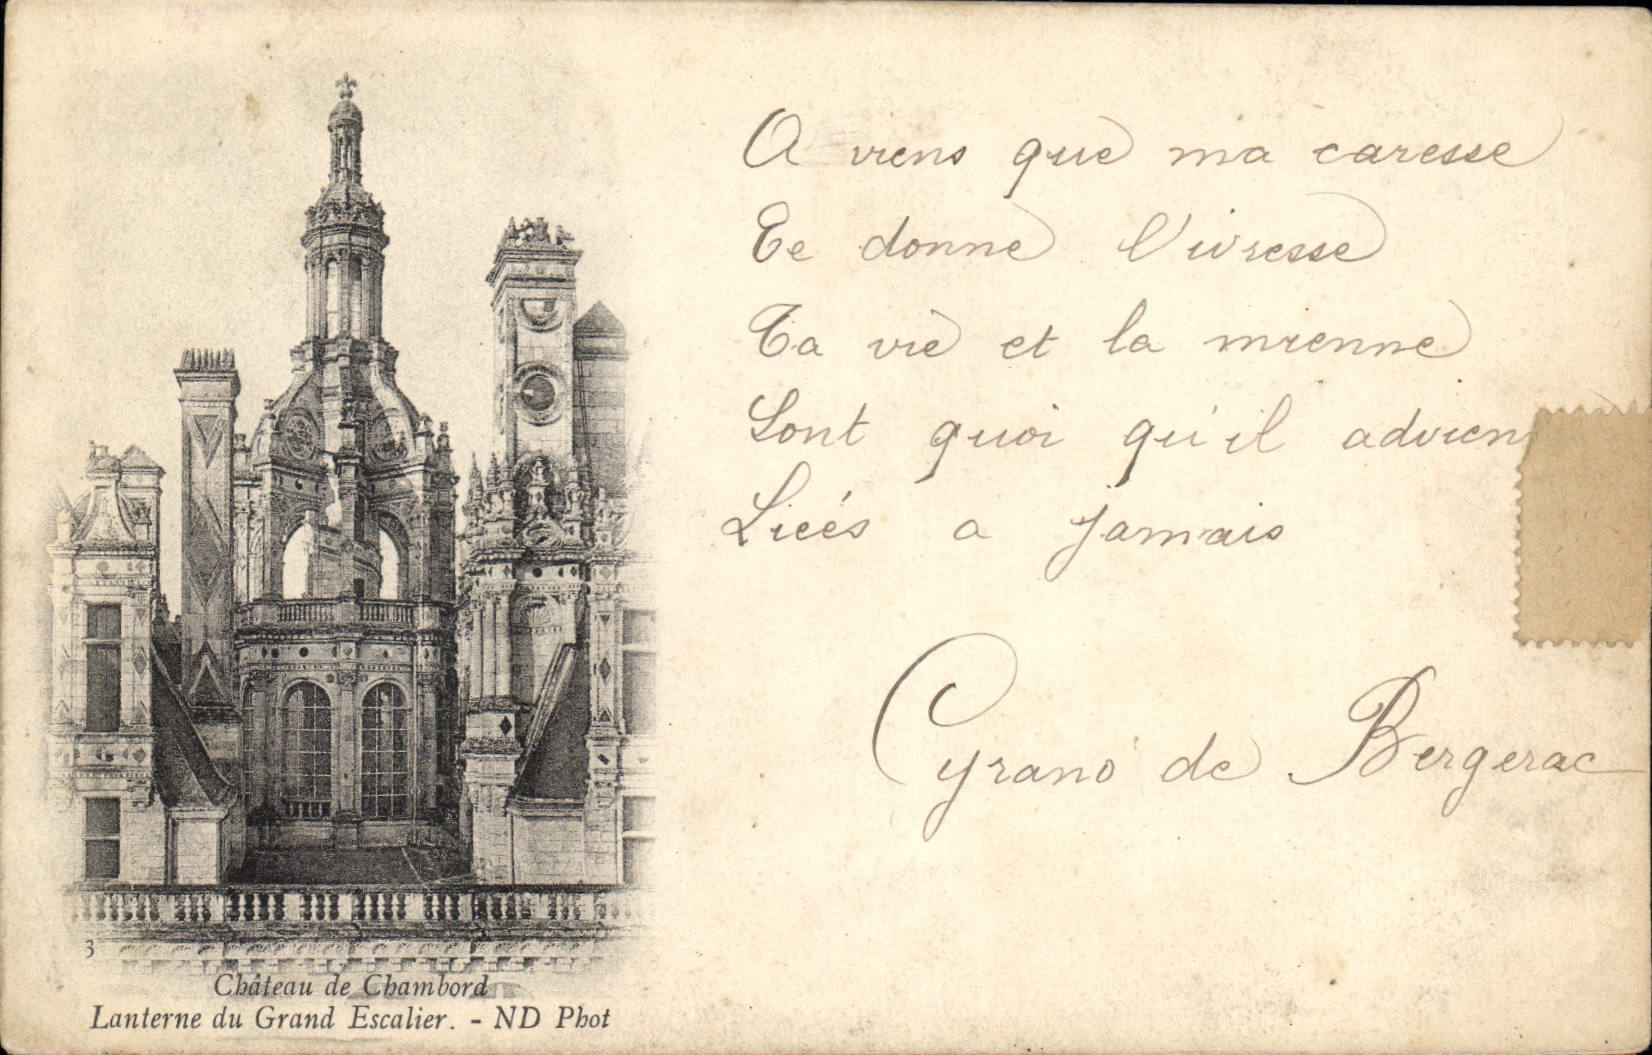 A viens que ma caresse
Te donne l'ivresse
Ta vie et la mienne
Sont quoi qu'il advien
Liées a jamais
Cyrano de Bergerac
3
Château de Chambord
Lanterne du Grand Escalier. - ND Phot